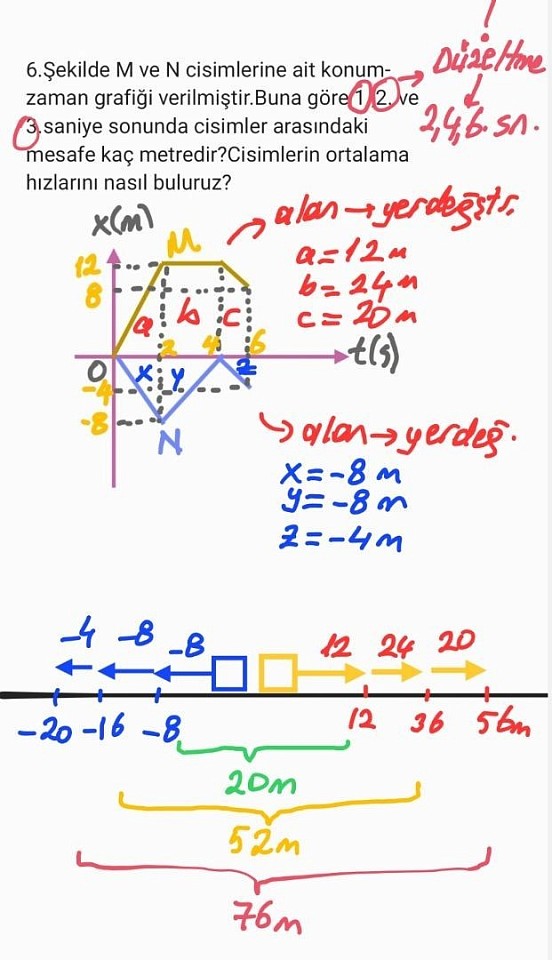 6.Şekilde M ve N cisimlerine ait konum-
zaman grafiği verilmiştir.Buna göre 1, 2. ve
3.saniye sonunda cisimler arasındaki
mesafe kaç metredir?Cisimlerin ortalama
hızlarını nasıl buluruz?
! Düzeltme
2,4,6. sn.
x(m)
M
12
8
a b c
2 4 6
t(s)
0
x y z
-4
-8
N
alan → yerdeğştr.
a=12m
b=24m
c=20m
alan → yerdeğ.
x=-8m
y=-8m
z=-4m
-4 -8 -8 12 24 20
-20 -16 -8 12 36 56m
20m
52m
76m